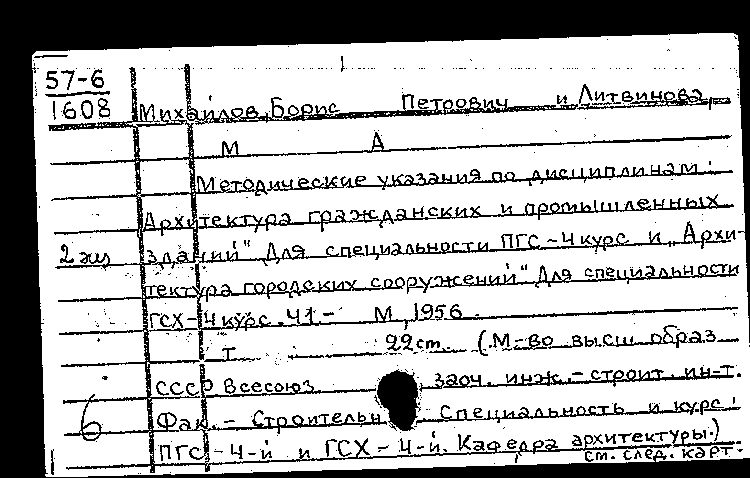 57-6
1608 Михайлов, Борис Петрович и Литвинова,
М А
Методические указания по дисциплинам:
Архитектура гражданских и промышленных
2 экз зданий" Для специальности ПГС-4 курс и „Архи-
тектура городских сооружений" Для специальности
ГСХ-4 курс. Ч1- М, 1956.
Т 22 ст. (М-во высш образ
СССР Всесоюз заоч. инж.-строит. ин-т.
6 Фак. - Строительн Специальность и курс:
ПГС-4-й и ГСХ-4-й. Кафедра архитектуры.)
см. след. карт.